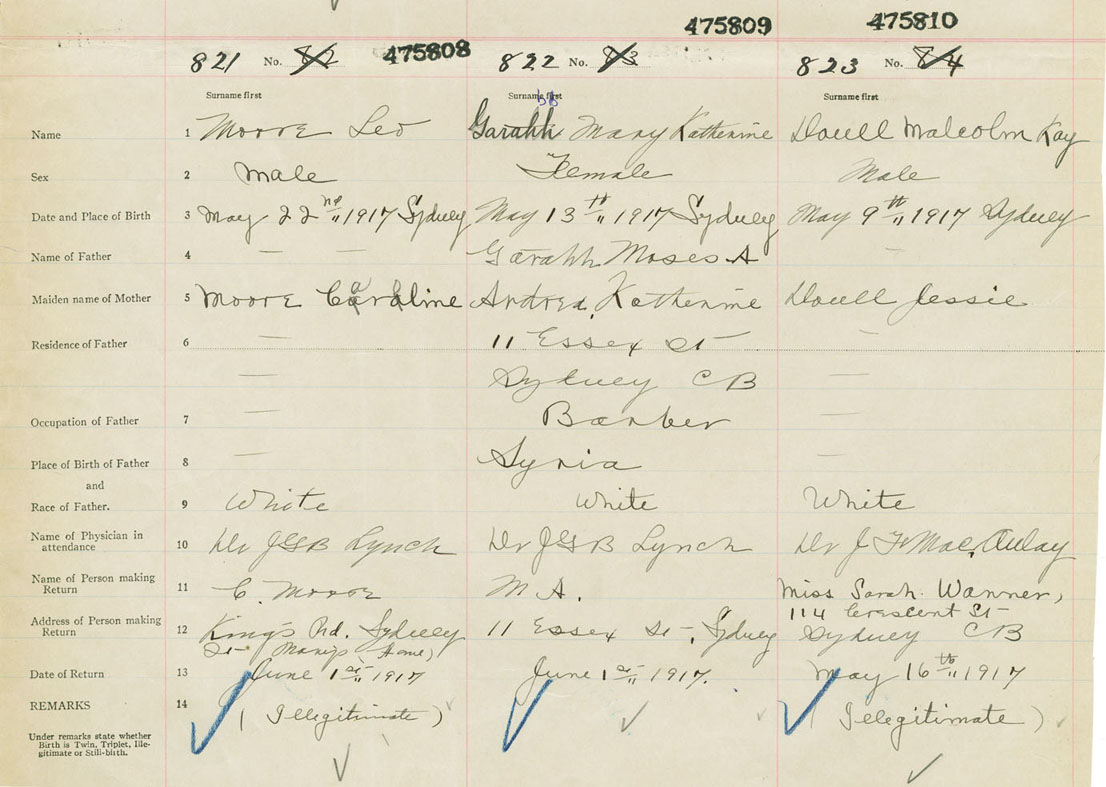 475809 475810
821 No. 82 475808 822 No. 83 823 No. 84
Surname first Surname first Surname first
bb
Name 1 Moore Leo Garahh Mary Katherine Dowell Malcolm Kay
Sex 2 Male Female Male
Date and Place of Birth 3 May 22nd 1917 Sydney May 13th 1917 Sydney May 9th 1917 Sydney
Name of Father 4 — — Garahh Moses A —
Maiden name of Mother 5 Moore Caroline Andrea, Katherine Dowell Jessie
Residence of Father 6 — 11 Essex St —
— Sydney CB —
Occupation of Father 7 — Barber —
Place of Birth of Father 8 — Syria —
and
Race of Father. 9 White White White
Name of Physician in
attendance 10 Dr JGB Lynch Dr JGB Lynch Dr J F MacAulay
Name of Person making
Return 11 C. Moore M A. Miss Sarah Warner,
114 Crescent St
Address of Person making
Return 12 King's Rd. Sydney 11 Essex St, Sydney Sydney CB
St Mary's Home)
Date of Return 13 June 1st 1917 June 1st 1917. May 16th 1917
REMARKS 14 (Illegitimate) (Illegitimate)
Under remarks state whether
Birth is Twin, Triplet, Ille-
gitimate or Still-birth.